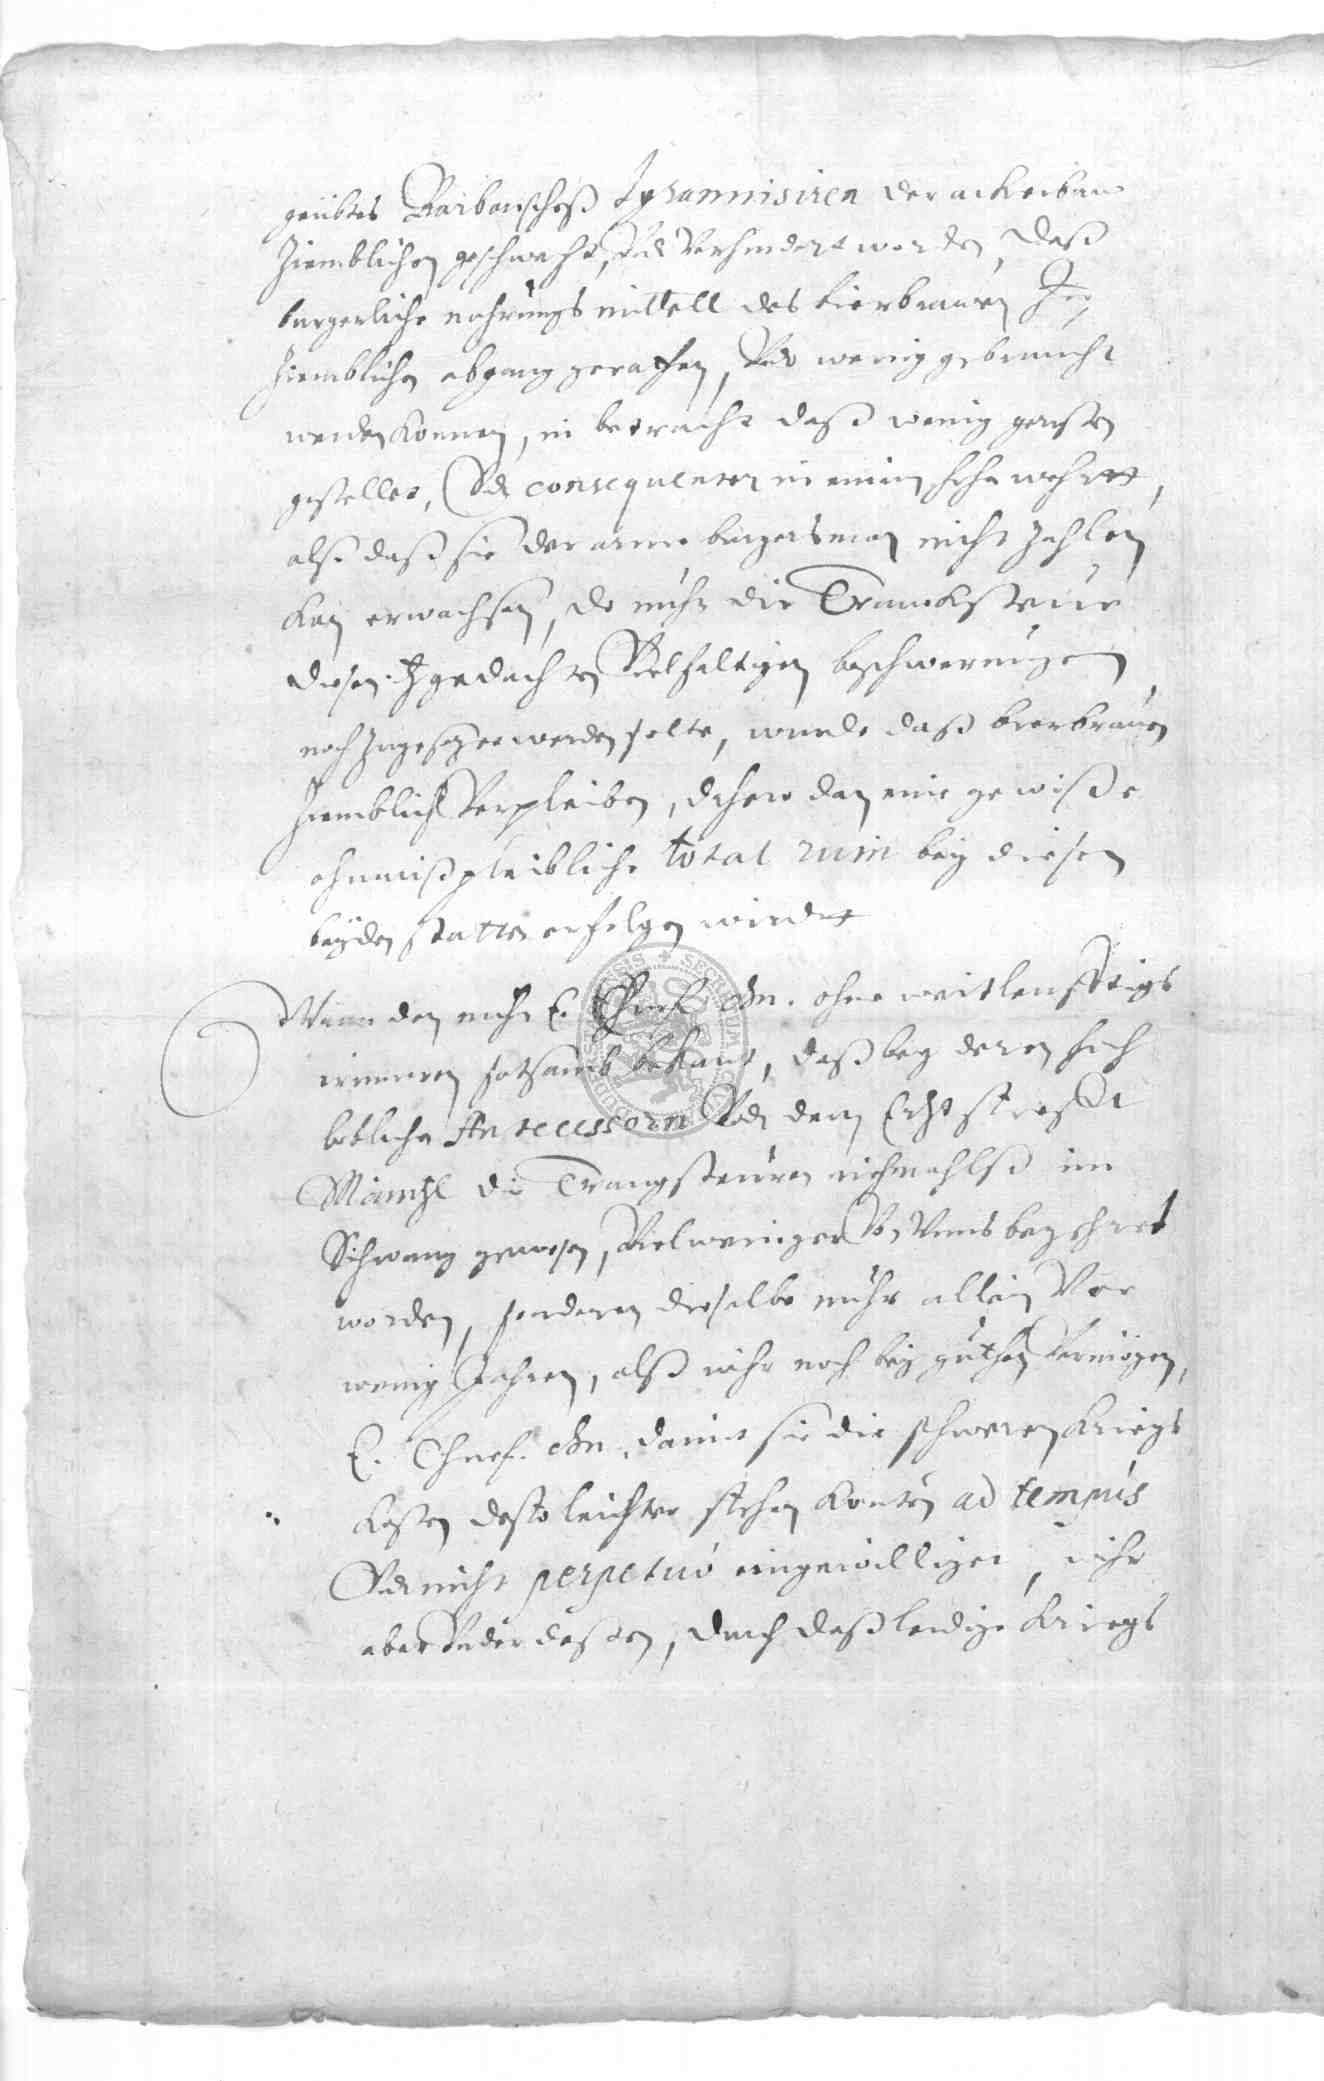 geübtes Barbarisches Tyrannisiren der ackerbau
Ziemblichen geschwecht, Vnd Verhindert worden, daß
burgerliche nahrungs mittell des bierbrauen In
Ziemblichen abgang gerathen, Vnd wenig gebraucht
werden konnen, in betracht daß wenig gersten
gestellet, Vnd consequenter in einem hohn wehrtt,
alß daß sie der arme burgersman nicht zahlen
kan erwachsen, do nuhn die Tranksteur
diesen gedachten Vielfaltigen beschwerungen
noch zugesezet werden solte, wurde daß bierbrauen
Ziemblich Verpleiben, dahero dan eine gewiße
ohnaußpleibliche total ruin bey diesen
beyden statten erfolgen wirdtt
Wann den nuhn E. Churf. dn. ohne weitleufftigs
erinneren satsamb bekant, daß bey deren hoch
loblichen Antecessorn Vnd dem Ertzstifft
Maintz die Trangsteuren niehmahlß im
Schwang gewesen, Vielweniger Von Vnns begehret
worden, sonderen dieselbe nuhr allein Vor
wenig Jahren, alß wihr noch bey guthen Vermögen,
E. Churf. dn. damit sie die schweren Kriegs
kosten desto leichter stehen konten ad tempus
Vnd nicht perpetuo eingewilliget, wihr
aber Vnder deßen, durch daß leidige Kriegs